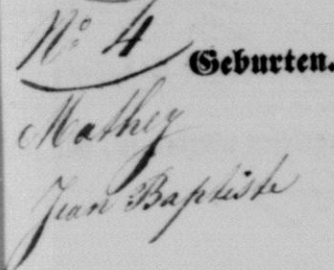 No. 4
Geburten.
Mathey
Jean Baptiste